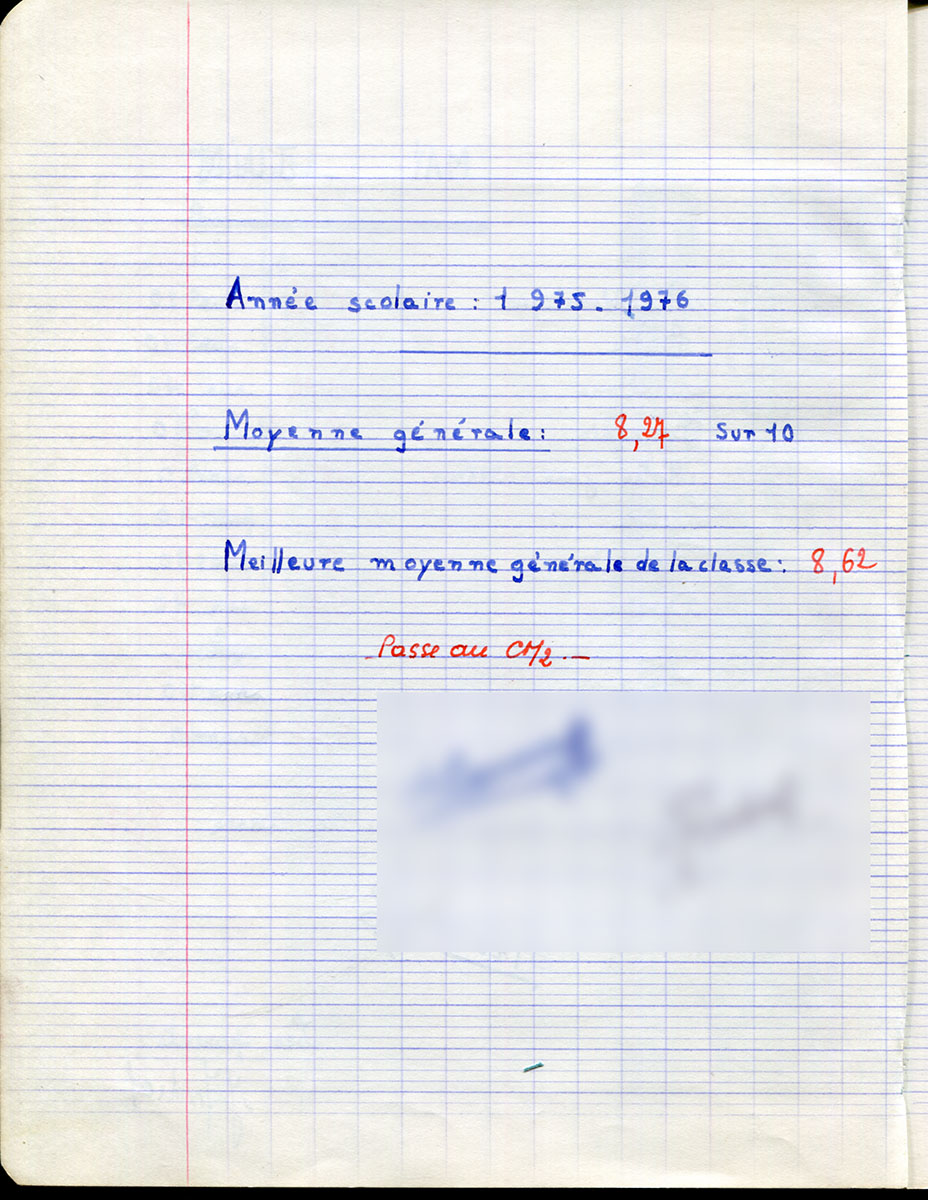 Année scolaire : 1975. 1976
Moyenne générale : 8,27 sur 10
Meilleure moyenne générale de la classe : 8,62
Passe au CM2.